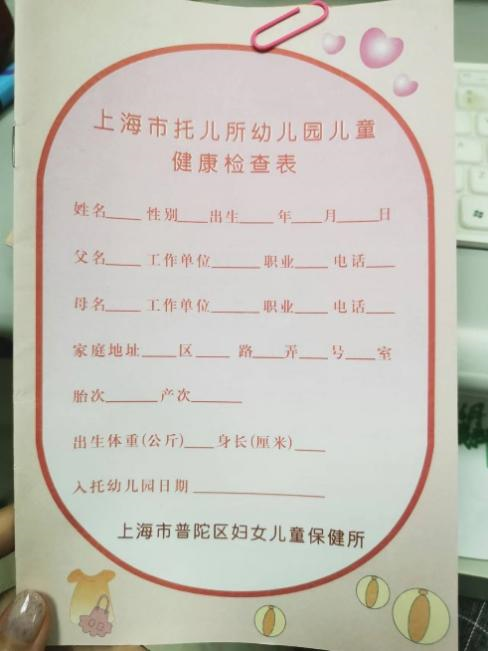 上海市托儿所幼儿园儿童
健康检查表
姓名____ 性别____出生____ 年____月____日
父名____ 工作单位______ 职业____ 电话____
母名____ 工作单位______ 职业____ 电话____
家庭地址____区____ 路____弄____号____室
胎次______产次______
出生体重(公斤)____身长(厘米)____
入托幼儿园日期________________
上海市普陀区妇女儿童保健所